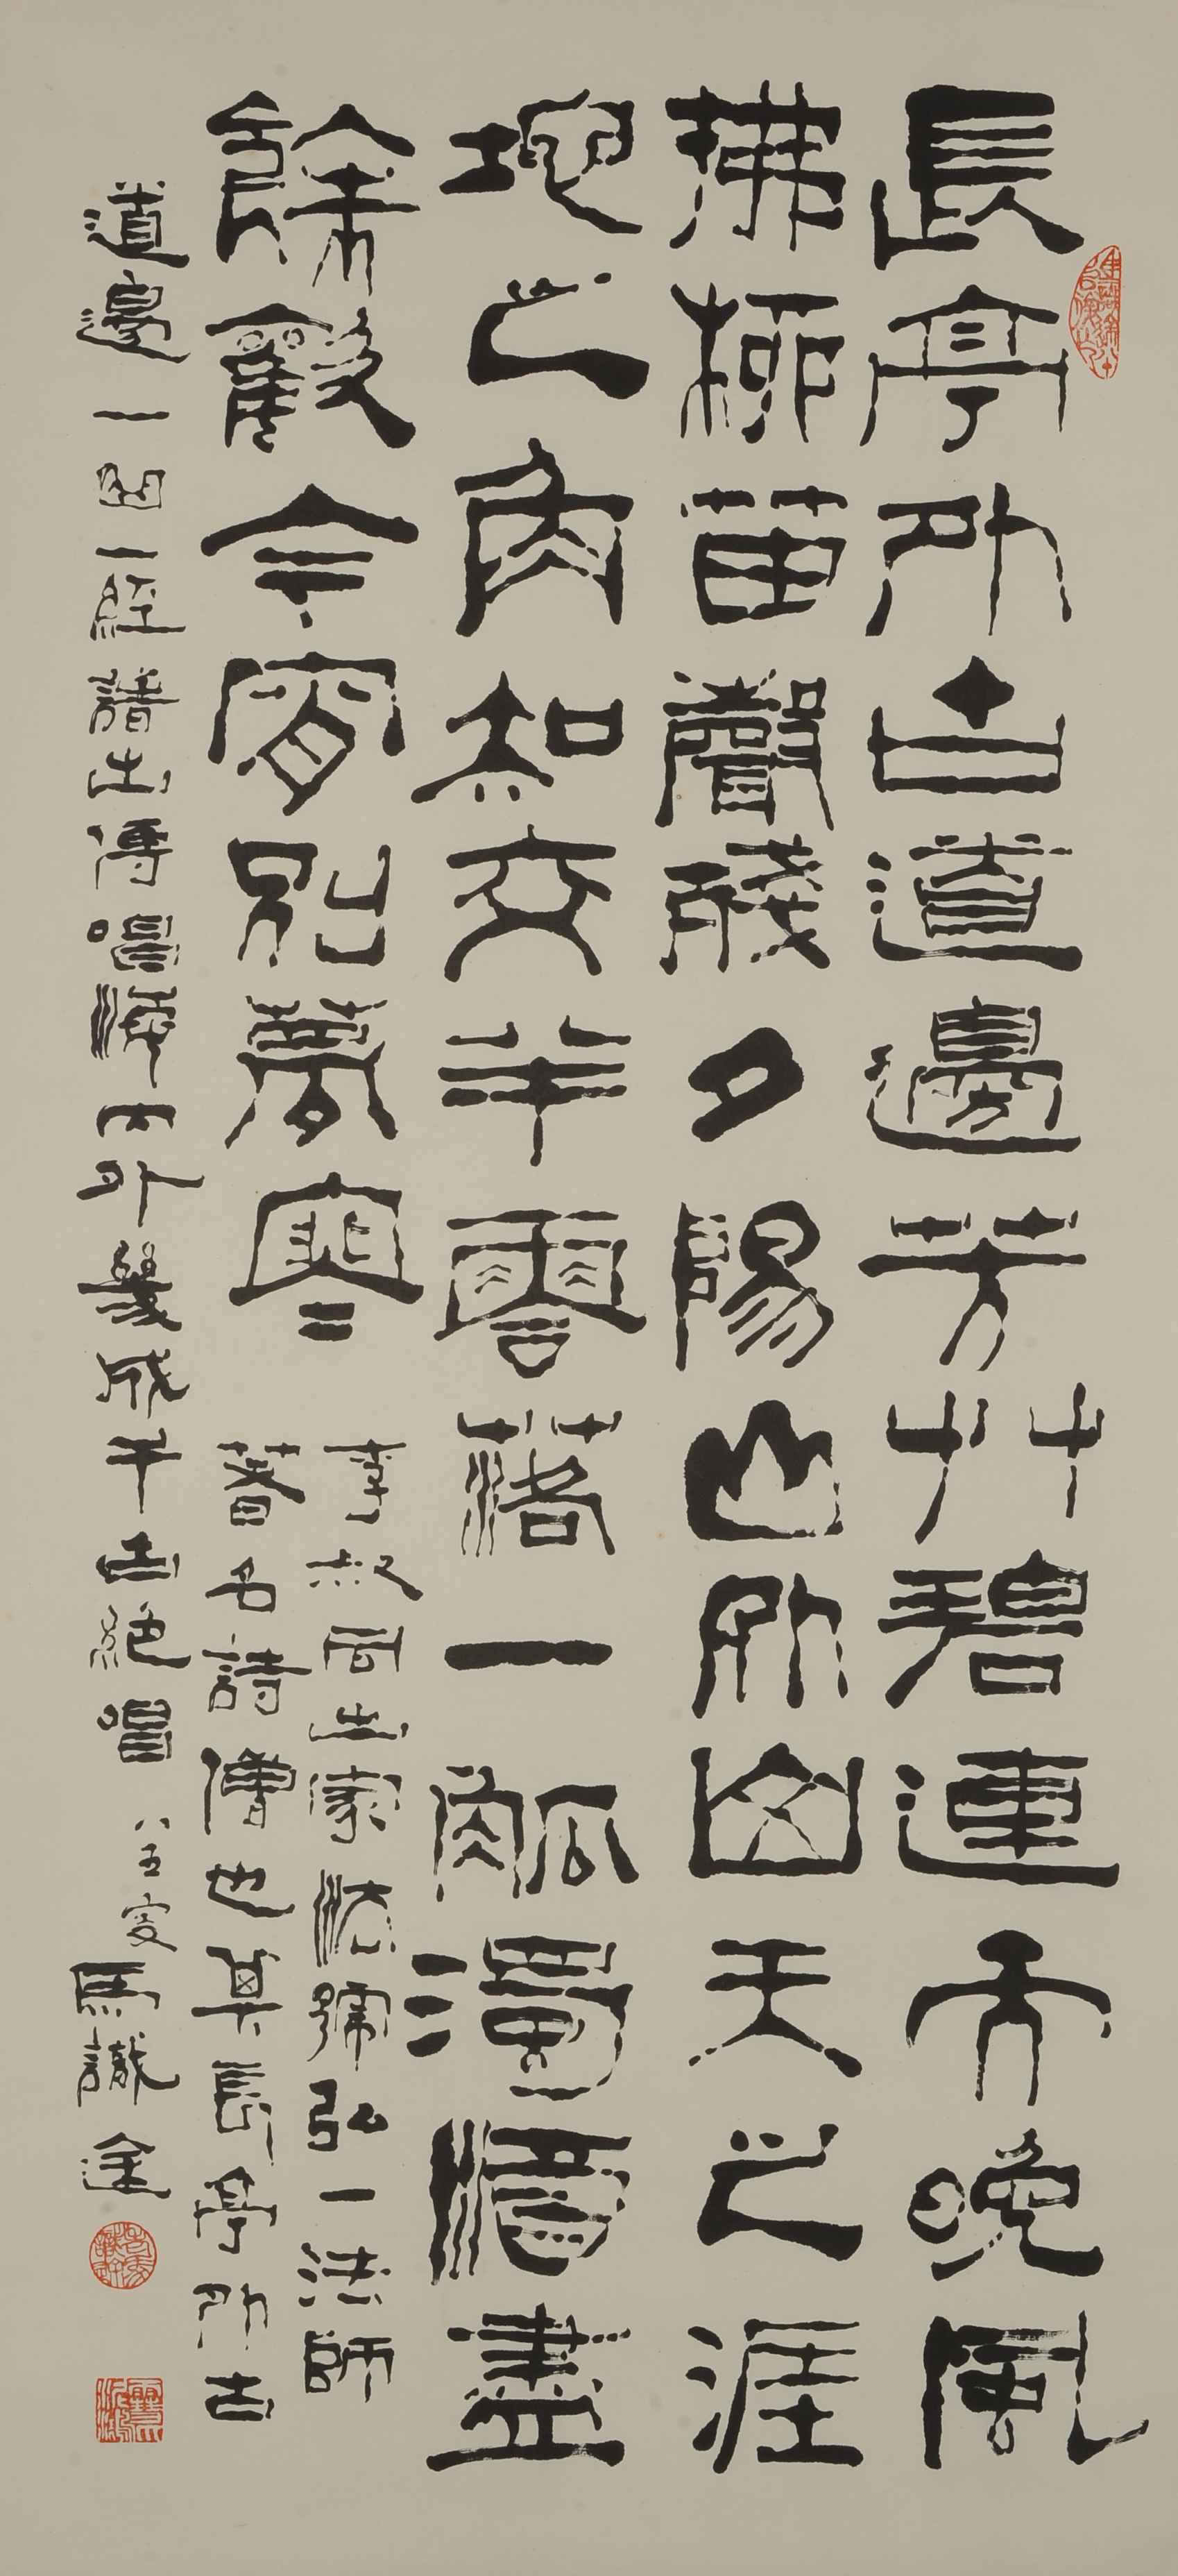 長亭外古道邊芳艸碧連天晚風
拂柳笛聲殘夕陽山外山天之涯
地之角知交半零落一觚濁酒盡
餘歡今宵別夢寒
李叔同出家法號弘一法師
著名詩僧也其長亭外古
道邊一曲一經譜出傳唱海內外幾成千古絕唱 八五叟 馬識途